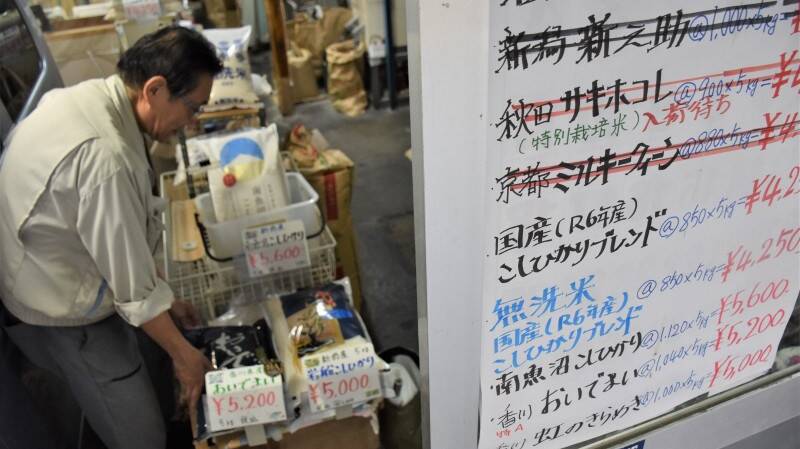 新潟 新之助 @1,000×5kg=
秋田 サキホコレ @900×5kg=¥4
(特別栽培米) 入荷待ち
京都 ミルキークィーン @880×5kg=¥4
国産(R6年産)
こしひかりブレンド @850×5kg=¥4.2
無洗米
国産(R6年産)
こしひかりブレンド @850×5kg=¥4.250
南魚沼 こしひかり @1.120×5kg=¥5,600
香川 おいでまい @1,040×5kg=¥5,200
特A
香川 虹のきらめき @1,000×5kg=¥5,000
こしひかり
¥5,600
香川県産
おいでまい
¥5,200
5kg 税込
新潟産 5kg
岩船こしひかり
¥5,000